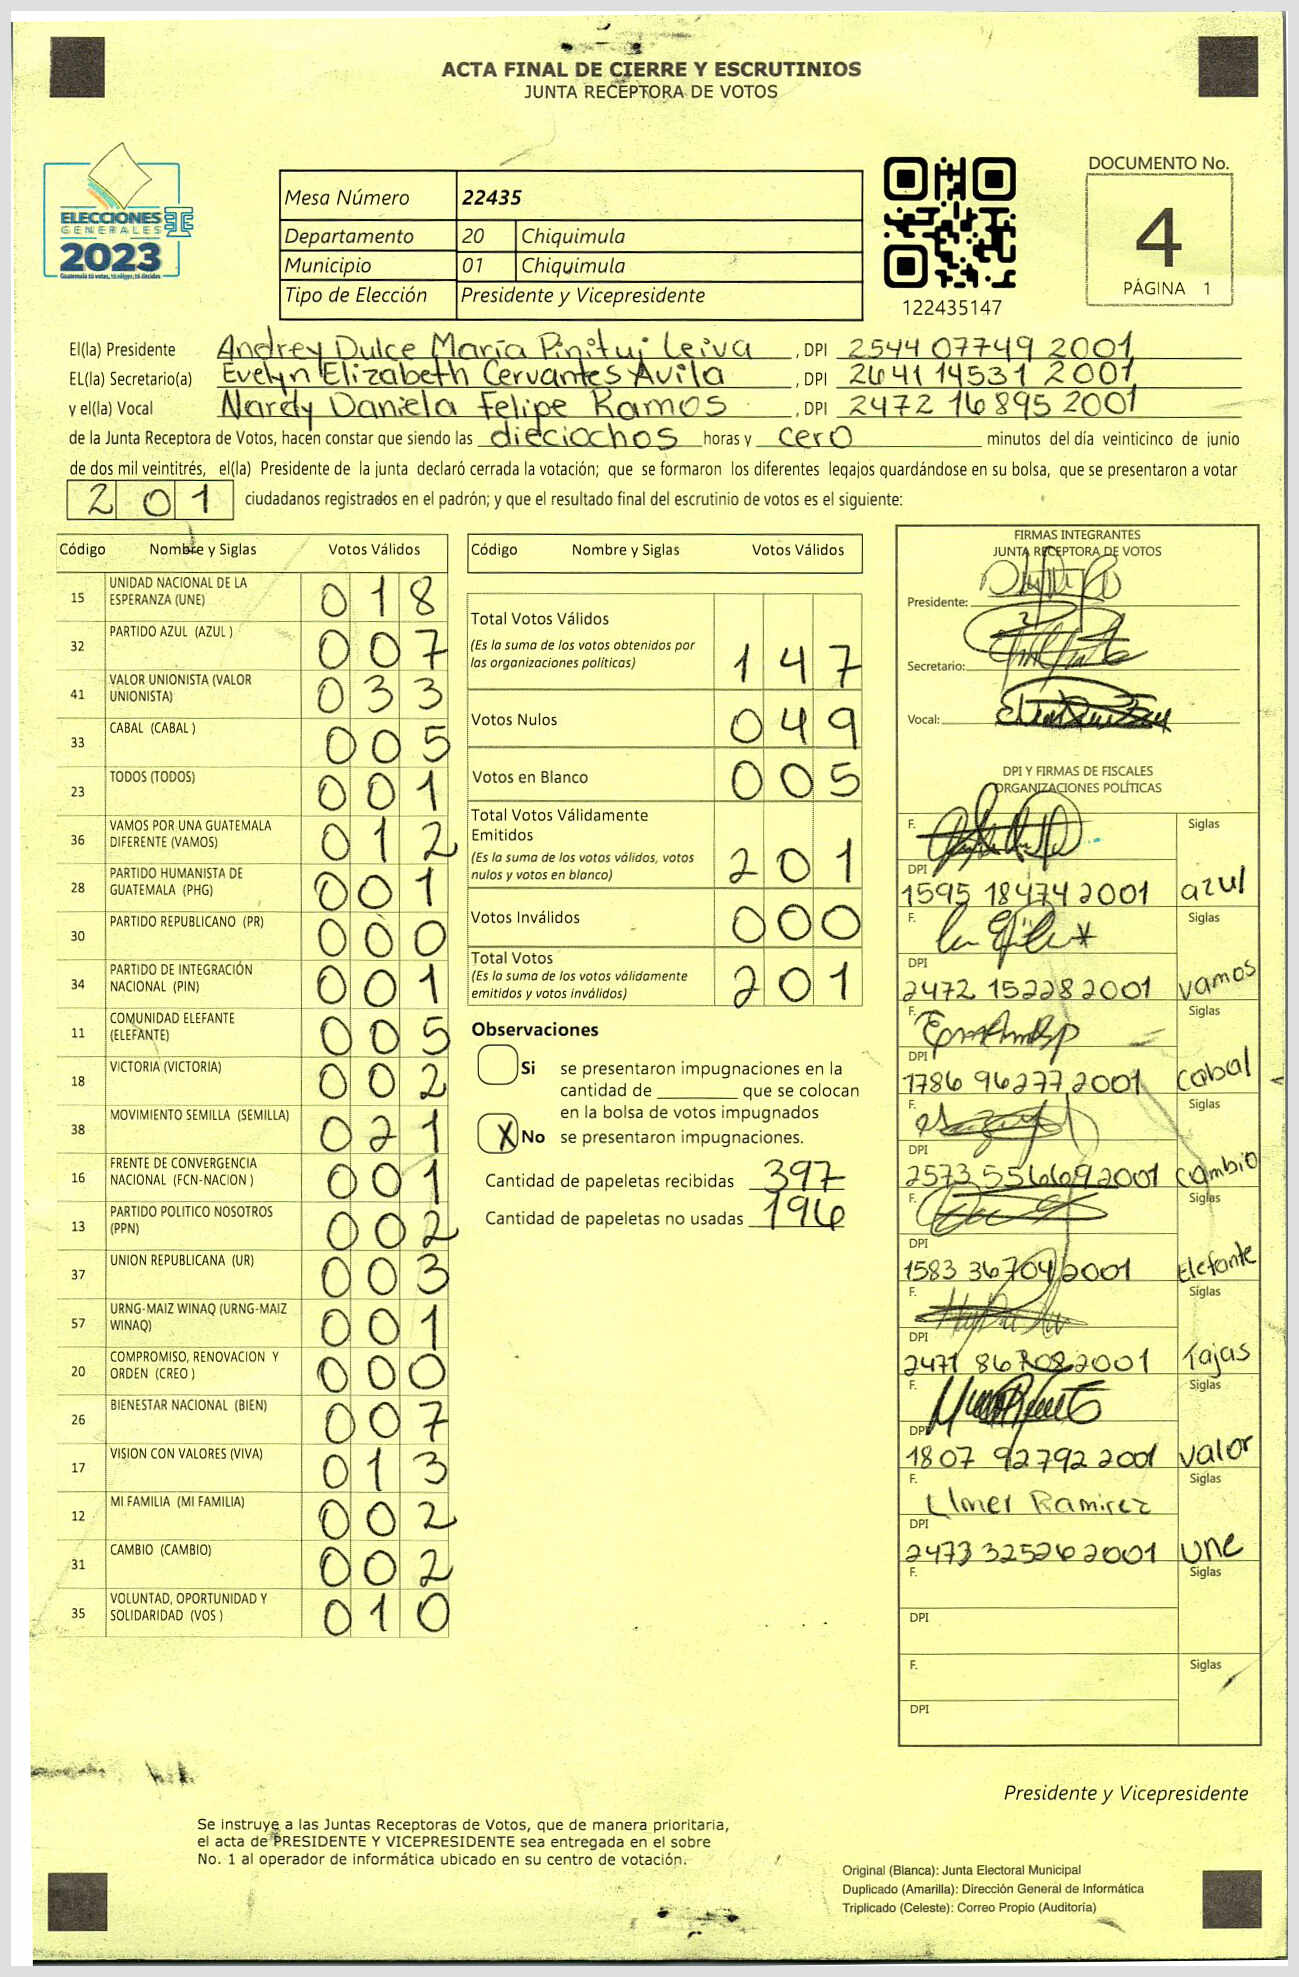 ACTA FINAL DE CIERRE Y ESCRUTINIOS
JUNTA RECEPTORA DE VOTOS
ELECCIONES
GENERALES
2023
Guatemala tú votas, tú eliges, tú decides
Mesa Número 22435
Departamento 20 Chiquimula
Municipio 01 Chiquimula
Tipo de Elección Presidente y Vicepresidente
122435147
DOCUMENTO No.
4
PÁGINA 1
El(la) Presidente Andrey Dulce María Pinituj Leiva , DPI 2544 07749 2001
EL(la) Secretario(a) Evelyn Elizabeth Cervantes Avila , DPI 2641 14531 2001
y el(la) Vocal Nardy Daniela Felipe Ramos , DPI 2472 16895 2001
de la Junta Receptora de Votos, hacen constar que siendo las dieciochos horas y cero minutos del día veinticinco de junio
de dos mil veintitrés, el(la) Presidente de la junta declaró cerrada la votación; que se formaron los diferentes legajos quardándose en su bolsa, que se presentaron a votar
201 ciudadanos registrados en el padrón; y que el resultado final del escrutinio de votos es el siguiente:
Código Nombre y Siglas Votos Válidos
15 UNIDAD NACIONAL DE LA
ESPERANZA (UNE) 018
32 PARTIDO AZUL (AZUL ) 007
41 VALOR UNIONISTA (VALOR
UNIONISTA) 033
33 CABAL (CABAL ) 005
23 TODOS (TODOS) 001
36 VAMOS POR UNA GUATEMALA
DIFERENTE (VAMOS) 012
28 PARTIDO HUMANISTA DE
GUATEMALA (PHG) 001
30 PARTIDO REPUBLICANO (PR) 000
34 PARTIDO DE INTEGRACIÓN
NACIONAL (PIN) 001
11 COMUNIDAD ELEFANTE
(ELEFANTE) 005
18 VICTORIA (VICTORIA) 002
38 MOVIMIENTO SEMILLA (SEMILLA) 021
16 FRENTE DE CONVERGENCIA
NACIONAL (FCN-NACION ) 001
13 PARTIDO POLITICO NOSOTROS
(PPN) 002
37 UNION REPUBLICANA (UR) 003
57 URNG-MAIZ WINAQ (URNG-MAIZ
WINAQ) 001
20 COMPROMISO, RENOVACION Y
ORDEN (CREO ) 000
26 BIENESTAR NACIONAL (BIEN) 007
17 VISION CON VALORES (VIVA) 013
12 MI FAMILIA (MI FAMILIA) 002
31 CAMBIO (CAMBIO) 002
35 VOLUNTAD, OPORTUNIDAD Y
SOLIDARIDAD (VOS ) 010
Código Nombre y Siglas Votos Válidos
Total Votos Válidos
(Es la suma de los votos obtenidos por
las organizaciones políticas) 147
Votos Nulos 049
Votos en Blanco 005
Total Votos Válidamente
Emitidos
(Es la suma de los votos válidos, votos
nulos y votos en blanco) 201
Votos Inválidos 000
Total Votos
(Es la suma de los votos válidamente
emitidos y votos inválidos) 201
Observaciones
Si se presentaron impugnaciones en la
cantidad de ________ que se colocan
en la bolsa de votos impugnados
X No se presentaron impugnaciones.
Cantidad de papeletas recibidas 397
Cantidad de papeletas no usadas 196
FIRMAS INTEGRANTES
JUNTA RECEPTORA DE VOTOS
Presidente:
Secretario:
Vocal:
DPI Y FIRMAS DE FISCALES
ORGANIZACIONES POLÍTICAS
F. Siglas
DPI
1595 18474 2001 azul
F. Siglas
DPI
2472 15228 2001 vamos
F. Siglas
DPI
1786 96277 2001 cabal
F. Siglas
DPI
2573 55669 2001 cambio
F. Siglas
DPI
1583 36704 2001 Elefante
F. Siglas
DPI
2471 86708 2001 Tajas
F. Siglas
DPI
1807 92792 2001 valor
F. Siglas
Elmer Ramirez
DPI
2473 32526 2001 une
F. Siglas
DPI
F. Siglas
DPI
Presidente y Vicepresidente
Se instruye a las Juntas Receptoras de Votos, que de manera prioritaria,
el acta de PRESIDENTE Y VICEPRESIDENTE sea entregada en el sobre
No. 1 al operador de informática ubicado en su centro de votación.
Original (Blanca): Junta Electoral Municipal
Duplicado (Amarilla): Dirección General de Informática
Triplicado (Celeste): Correo Propio (Auditoría)